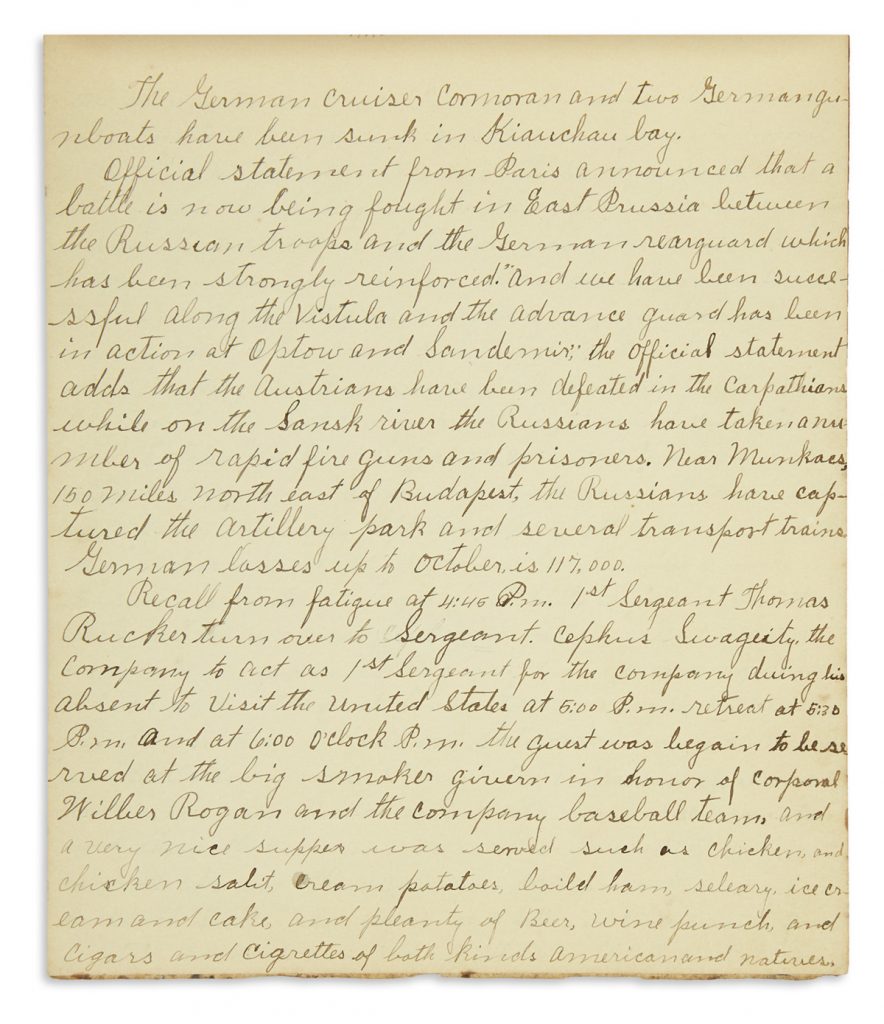 The German cruiser Cormoran and two German gu-
nboats have been sunk in Kiauchau bay.
Official statement from Paris announced that a
battle is now being fought in East Prussia between
the Russian troops and the German rearguard which
has been strongly reinforced." And we have been succe-
ssful along the Vistula and the advance guard has been
in action at Optow and Sandemir," the official statement
adds that the Austrians have been defeated in the Carpathians
while on the Sansk river the Russians have taken a nu-
mber of rapid fire guns and prisoners. Near Munkacs,
150 miles north east of Budapest, the Russians have cap-
tured the artillery park and several transport trains.
German losses up to October, is 117,000.
Recall from fatigue at 4:45 P.m. 1st Sergeant Thomas
Rucker turn over to Sergeant. Cephus Swageity, the
Company to act as 1st Sergeant for the company duing his
absent to Visit the United States at 5:00 P.m. retreat at 5:30
P.m. And at 6:00 O'clock P.m. the guest was begain to be se
rved at the big smoker givern in honor of corporal
Wilber Rogan and the company baseball team, and
a very nice supper was served such as chicken, and
chicken salit, cream potatoes, boild ham, seleary, ice cr-
eam and cake, and pleanty of Beer, wine punch, and
cigars and cigrettes of both kinds american and natives.